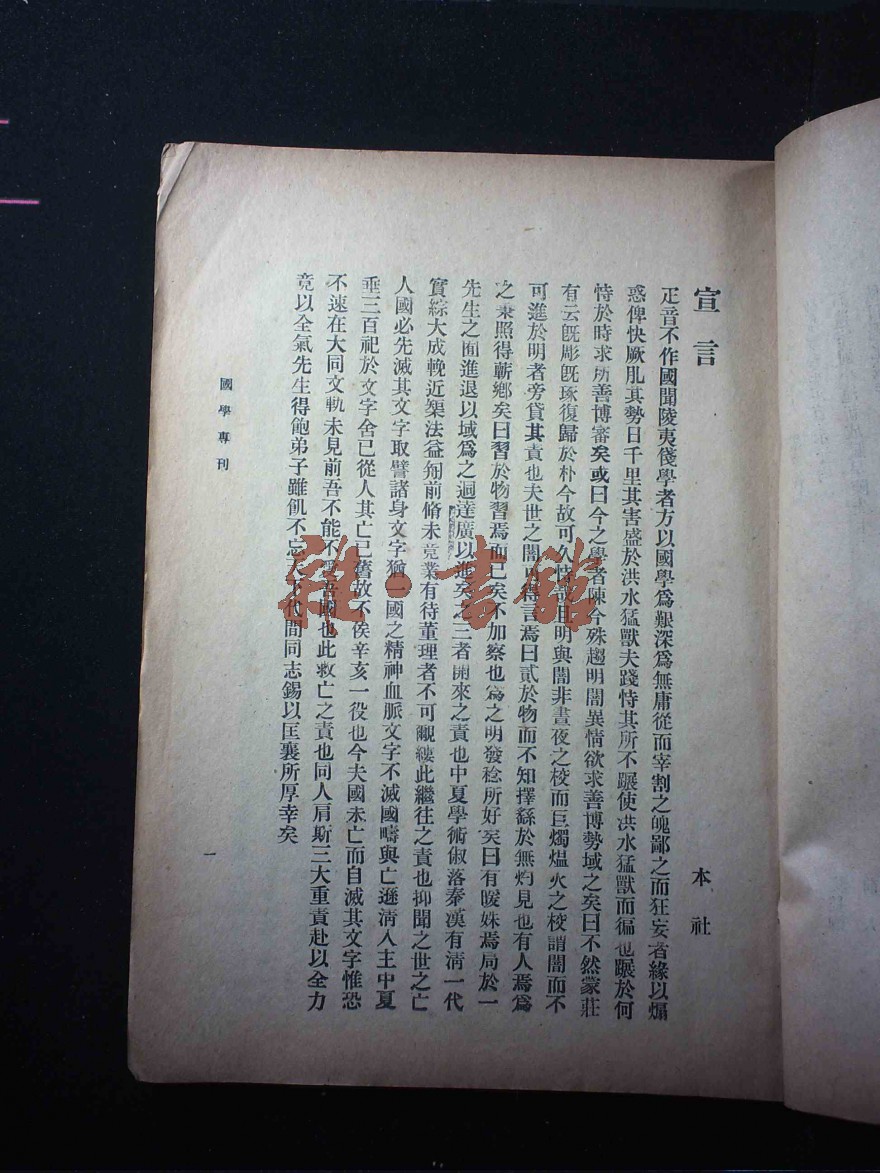 宣言
本社
正音不作國聞陵夷後學者方以國學爲艱深爲無庸從而宰割之媿鄙之而狂妄者緣以煽
惑俾快厥肊其勢日千里其害盛於洪水猛獸夫踐恃其所不蹍使洪水猛獸而徧也蹍於何
恃於時求所善博審矣或曰今之學者陳今殊趨明闇異情欲求善博勢域之矣曰不然蒙莊
有云旣彫旣琢復歸於朴今故可久
明與闇非晝夜之校而巨燭熅火之校謂闇而不
可進於明者旁貸其責也夫世之闇
言焉曰貳於物而不知擇繇於無灼見也有人焉爲
之秉照得蘄鄉矣曰習於物習焉而已矣不加察也爲之明發稔所好矣曰有暖姝焉局於一
先生之囿進退以域爲之迵達廣以進矣之三者開來之責也中夏學術俶落秦漢有淸一代
實綜大成輓近榘法益剏前脩未竟業有待董理者不可覼縷此繼往之責也抑聞之世之亡
人國必先滅其文字取譬諸身文字猶一國之精神血脈文字不滅國疇與亡遜淸入主中夏
垂三百祀於文字舍已從人其亡已舊故不俟辛亥一役也今夫國未亡而自滅其文字惟恐
不速在大同文軌未見前吾不能不愛吾國也此救亡之責也同人肩斯三大重責赴以全力
竟以全氣先生得飽弟子雖飢不忘天下代間同志錫以匡襄所厚幸矣
國學專刊
一
雜·書館